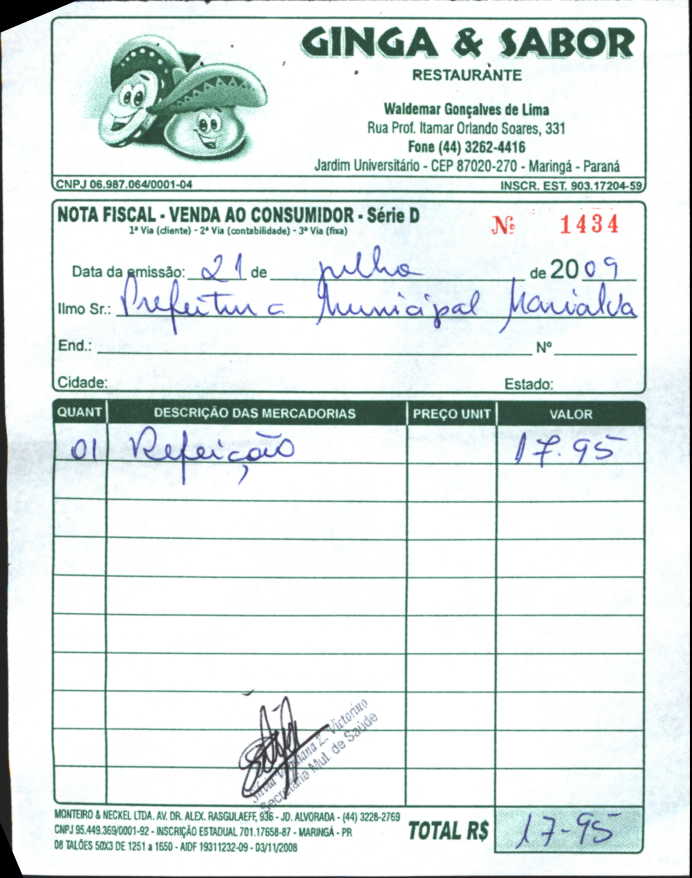 GINGA & SABOR
RESTAURANTE
Waldemar Gonçalves de Lima
Rua Prof. Itamar Orlando Soares, 331
Fone (44) 3262-4416
Jardim Universitário - CEP 87020-270 - Maringá - Paraná
CNPJ 06.987.064/0001-04 INSCR. EST. 903.17204-59
NOTA FISCAL - VENDA AO CONSUMIDOR - Série D
1ª Via (cliente) - 2ª Via (contabilidade) - 3ª Via (fixa)
Nº 1434
Data da emissão: 21 de julho de 2009
Ilmo Sr.: Prefeitura Municipal Marialva
End.: Nº
Cidade: Estado:
QUANT DESCRIÇÃO DAS MERCADORIAS PREÇO UNIT VALOR
01 Refeição 17.95
Victorino
Mul. de Saúde
MONTEIRO & NECKEL LTDA. AV. DR. ALEX. RASGULAEFF, 936 - JD. ALVORADA - (44) 3228-2769
CNPJ 95.449.369/0001-92 - INSCRIÇÃO ESTADUAL 701.17658-87 - MARINGÁ - PR
08 TALÕES 50X3 DE 1251 a 1650 - AIDF 19311232-09 - 03/11/2008
TOTAL R$ 17-95